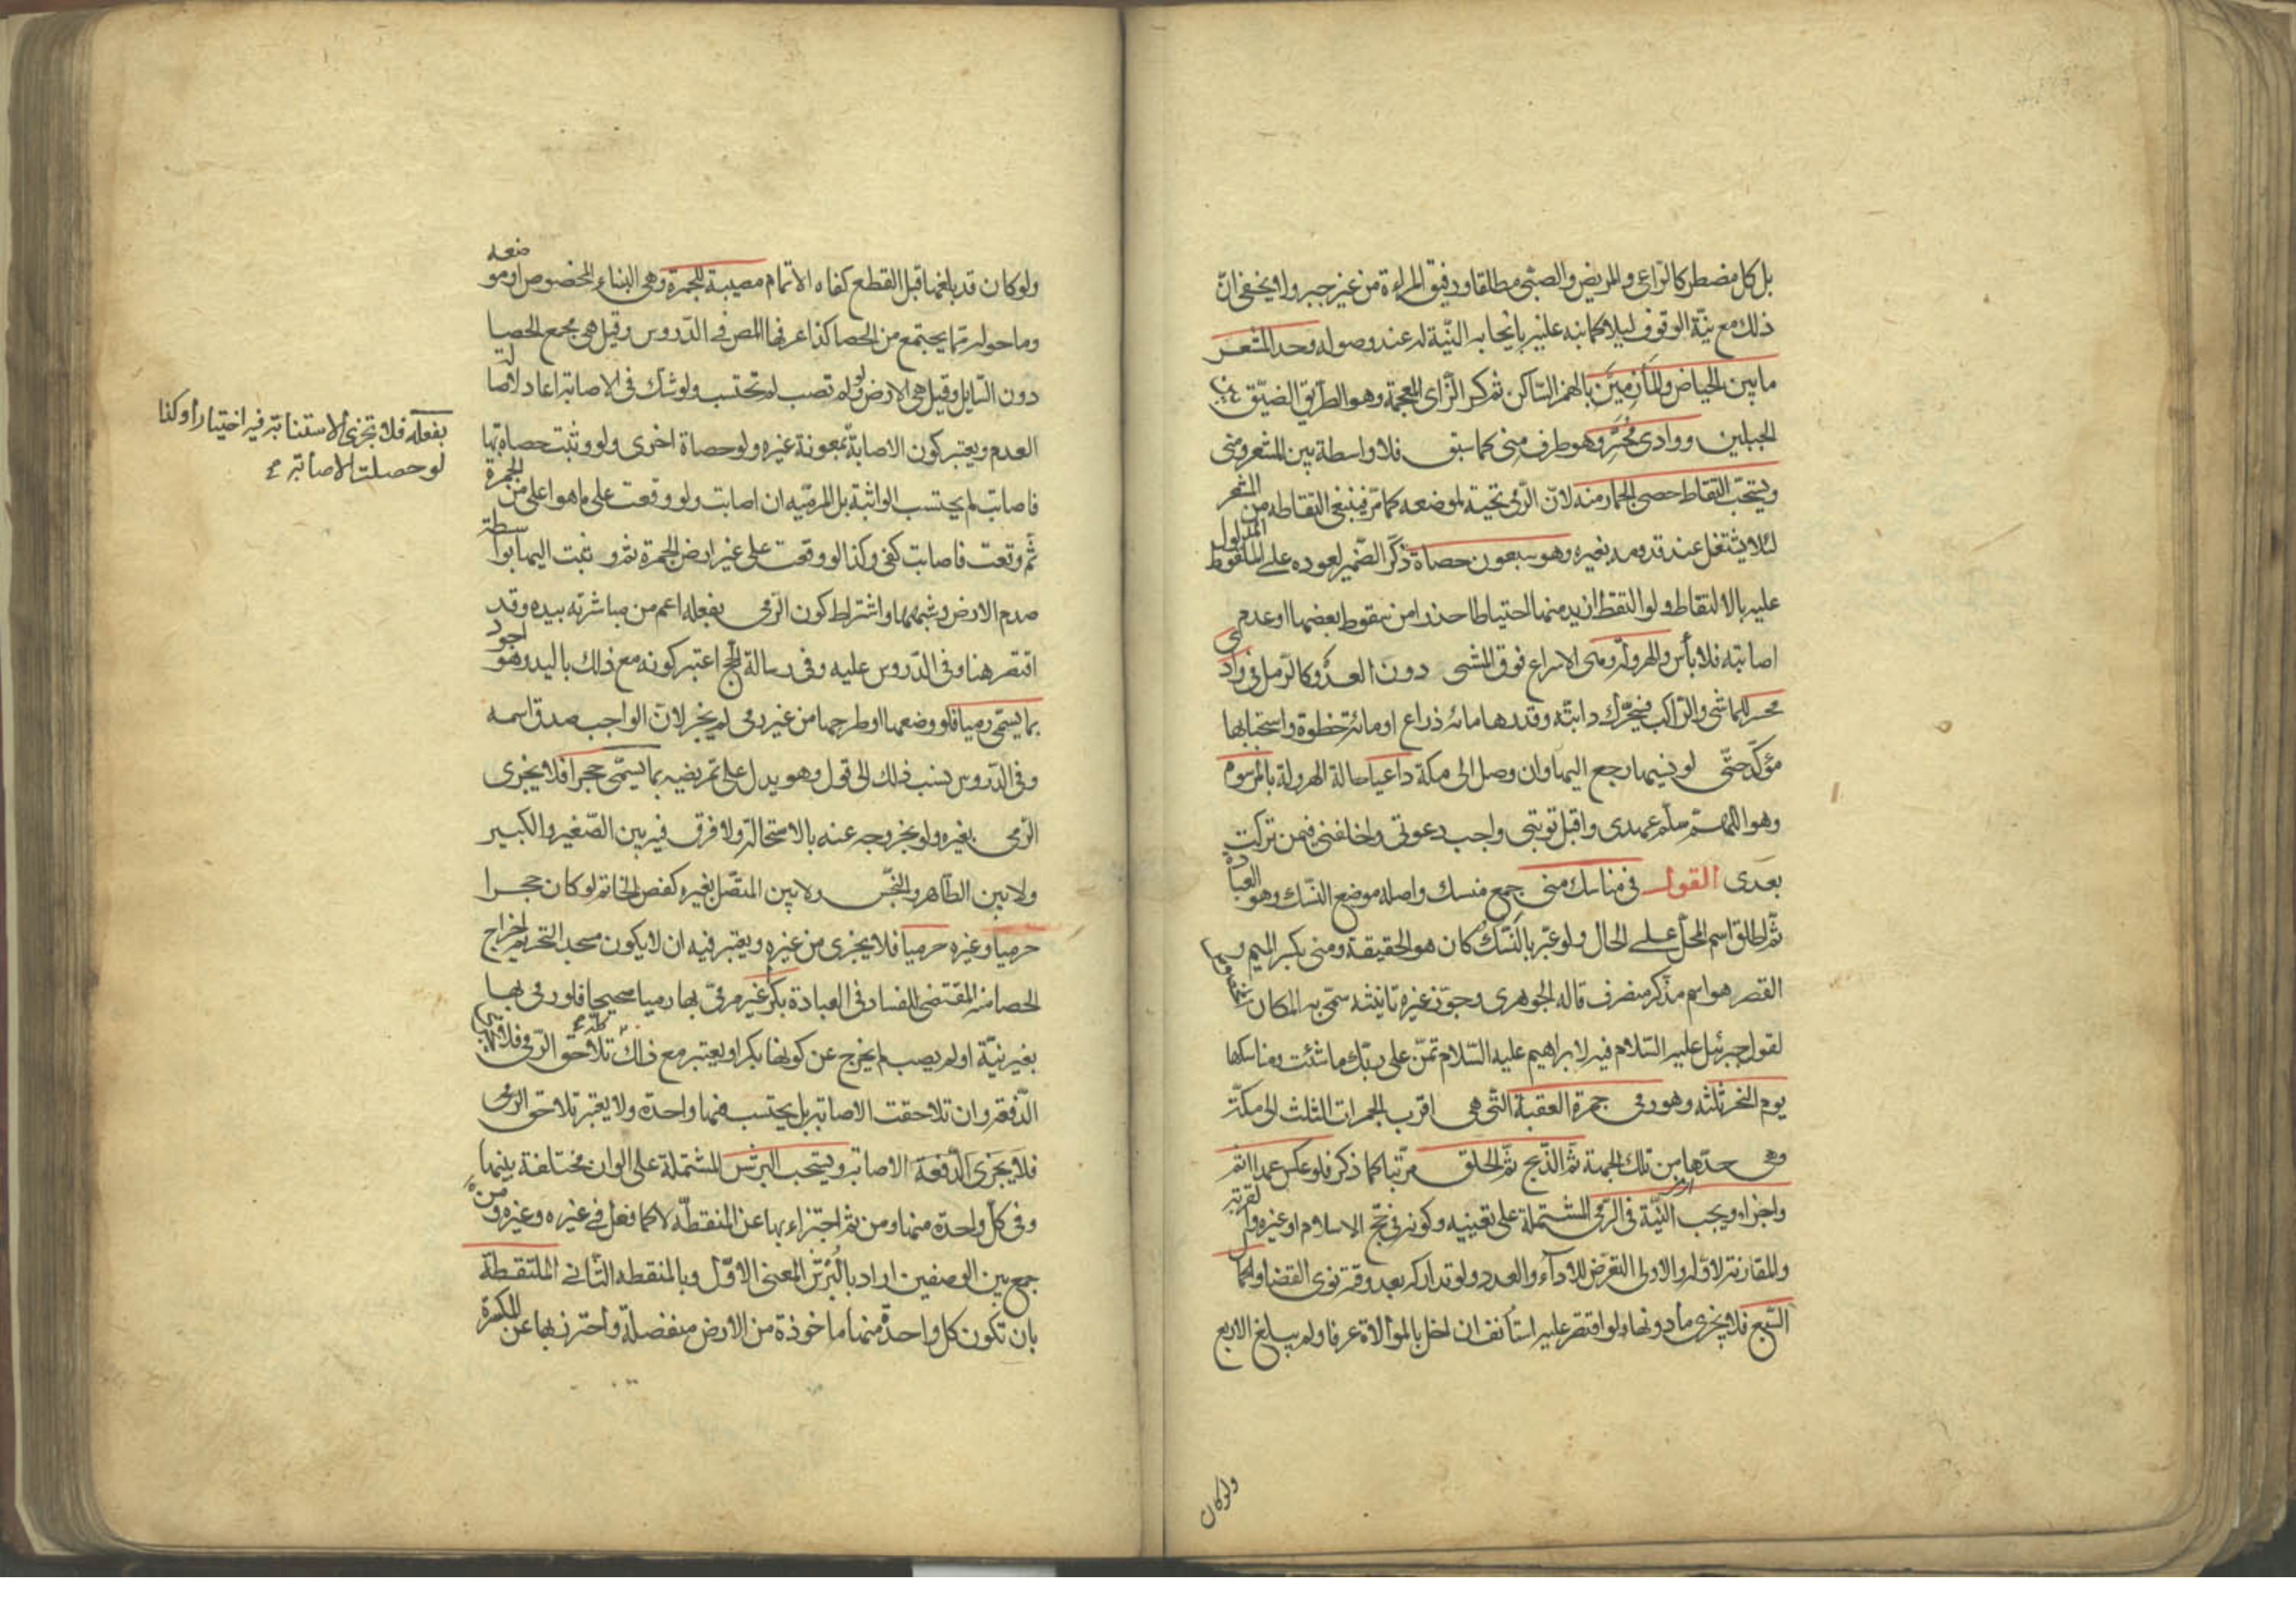 بل كل مضطر كالراعي والمريض والصبي مطلقا ورفيق المراة من غير جبر ولا يخفى ان
ذلك مع نية الوقوف ليلا كما نبه عليه بايجابه النية له عند وصوله وحد المشعر
ما بين الحياض والمأزمين بالهمز الساكن ثم كسر الزاي المعجمة وهو الطريق الضيق بين
الجبلين ووادى محسر وهو طرف منى كما سبق فلا واسطة بين المشعر ومنى
ويستحب التقاط حصى الجمار منه لان الرمى تحية لموضعه كما مر فينبغى التقاطه من المشعر
لئلا يشتغل عند قدومه بغيره وهو سبعون حصاة ذكر الضمير لعوده على الملقوط المدلول
عليه بالالتقاط ولو التقط ازيد منها احتياطا حذرا من سقوط بعضها او عدم
اصابته فلا بأس والهرولة وهى الاسراع فوق المشى دون العدو كالرمل فى وادى
محسر للماشى والراكب فيحرك دابته وقدرها مائة ذراع او مائة خطوة واستحبابها
مؤكد حتى لو نسيها رجع اليها وان وصل الى مكة داعيا حالة الهرولة بالمرسوم
وهو اللهم سلم عهدى واقبل توبتى واجب دعوتى واخلفنى فيمن تركت
بعدى القول فى مناسك منى جمع منسك واصله موضع النسك وهو العبادة
ثم اطلق اسم المحل على الحال ولو عبر بالنسك كان هو الحقيقة ومنى بكسر الميم و
القصر هو اسم مذكر منصرف قاله الجوهرى وجوز غيره تانيثه سمى به المكان
لقول جبرئيل عليه السلام فيه لابراهيم عليه السلام تمن على ربك ما شئت ومناسكها
يوم النحر ثلثه وهو رمى جمرة العقبة التى هى اقرب الجمرات الثلث الى مكة
وهى حدها من تلك الجهة ثم الذبح ثم الحلق مرتبا كما ذكر فلو عكس عمدا اثم
واجزا ويجب النية فى الرمى المشتملة على تعيينه وكونه فى حج الاسلام او غيره والقربة
والمقارنة لاوله والاولى التعرض للاداء والعدد ولو تداركه بعد وقته نوى القضا واكمال
السبع فلا يجزى ما دونها ولو اقتصر عليه استأنف ان اخل بالموالاة عرفا ولم يبلغ الاربع
ولو كان
ولو كان قد بلغها قبل القطع كفاه الاتمام مصيبة للجمرة وهى البناء المخصوص او موضعه
وما حوله مما يجتمع من الحصا كذا عرفها المص فى الدروس وقيل هى مجمع الحصا
دون السايل وقيل هى الارض ولو لم تصب لم تحتسب ولو شك فى الاصابة اعاد لاصالة
العدم ويعتبر كون الاصابة
بفعله فلا تجزى الاستنابة فيه اختيارا وكذا
لو حصلت الاصابة
بمعونة غيره ولو حصاة اخرى ولو وثبت حصاة بها
فاصابت لم يحتسب الواثبة بل المرميه ان اصابت ولو وقعت على ما هو اعلى من الجمرة
ثم وقعت فاصابت كفى وكذا لو وقعت على غير ارض الجمرة ثم وثبت اليها بواسطة
صدم الارض وشبهها واشتراط كون الرمى بفعله اعم من مباشرته بيده وقد
اقتصر هنا وفى الدروس عليه وفى رسالة الحج اعتبر كونه مع ذلك باليد وهو اجود
بما يسمى رميا فلو وضعها او طرحها من غير رمى لم يجز لان الواجب صدق اسمه
وفى الدروس نسب ذلك الى قول وهو يدل على تمريضه بما يسمى حجرا فلا يجزى
الرمى بغيره ولو بخروجه عنه بالاستحالة ولا فرق فيه بين الصغير والكبير
ولا بين الطاهر والنجس ولا بين المتصل بغيره كفص الخاتم لو كان حجرا
حرميا وغيره حرميا فلا يجزى من غيره ويعتبر فيه ان لا يكون مسجد التحريم اخراج
الحصا منه المقتضى للفساد فى العبادة بكر غير مرمى بها رميا صحيحا فلو رمى بها
بغير نية او لم يصب لم يخرج عن كونها بكرا ويعتبر مع ذلك كله تلاحق الرمى فلا
الدفعة وان تلاحقت الاصابة بل يحتسب منها واحدة ولا يعتبر تلاحق الرمى
فلا يجزى الدفعة الاصابة ويستحب البرش المشتملة على الوان مختلفة بينها
وفى كل واحدة منها ومن ثم اجتزاء بها عن المنقطة لا كما فعل فى غيره وغيره ومن
جمع بين الوصفين اراد بالبرش المعنى الاول وبالمنقطه الثانى الملتقطة
بان تكون كل واحدة منها ماخوذة من الارض منفصلة واحترز بها عن المكسرة